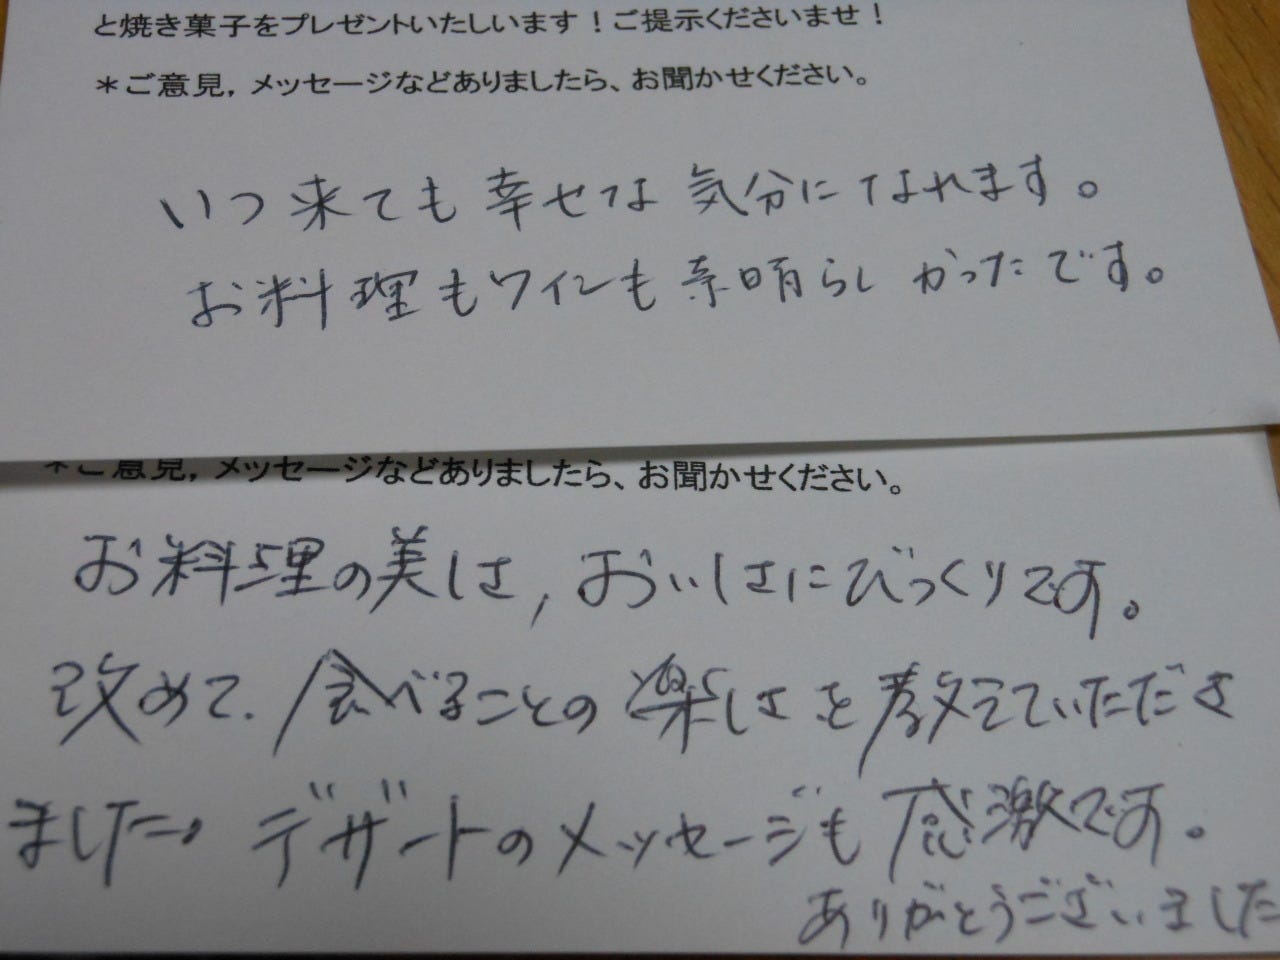 と焼き菓子をプレゼントいたしいます！ご提示くださいませ！
＊ご意見，メッセージなどありましたら、お聞かせください。
いつ来ても幸せな気分になれます。
お料理もワインも素晴らしかったです。
＊ご意見，メッセージなどありましたら、お聞かせください。
お料理の美しさ，おいしさにびっくりです。
改めて、食べることの楽しさを教えていただきさ
ました。デザートのメッセージも感激です。
ありがとうございました